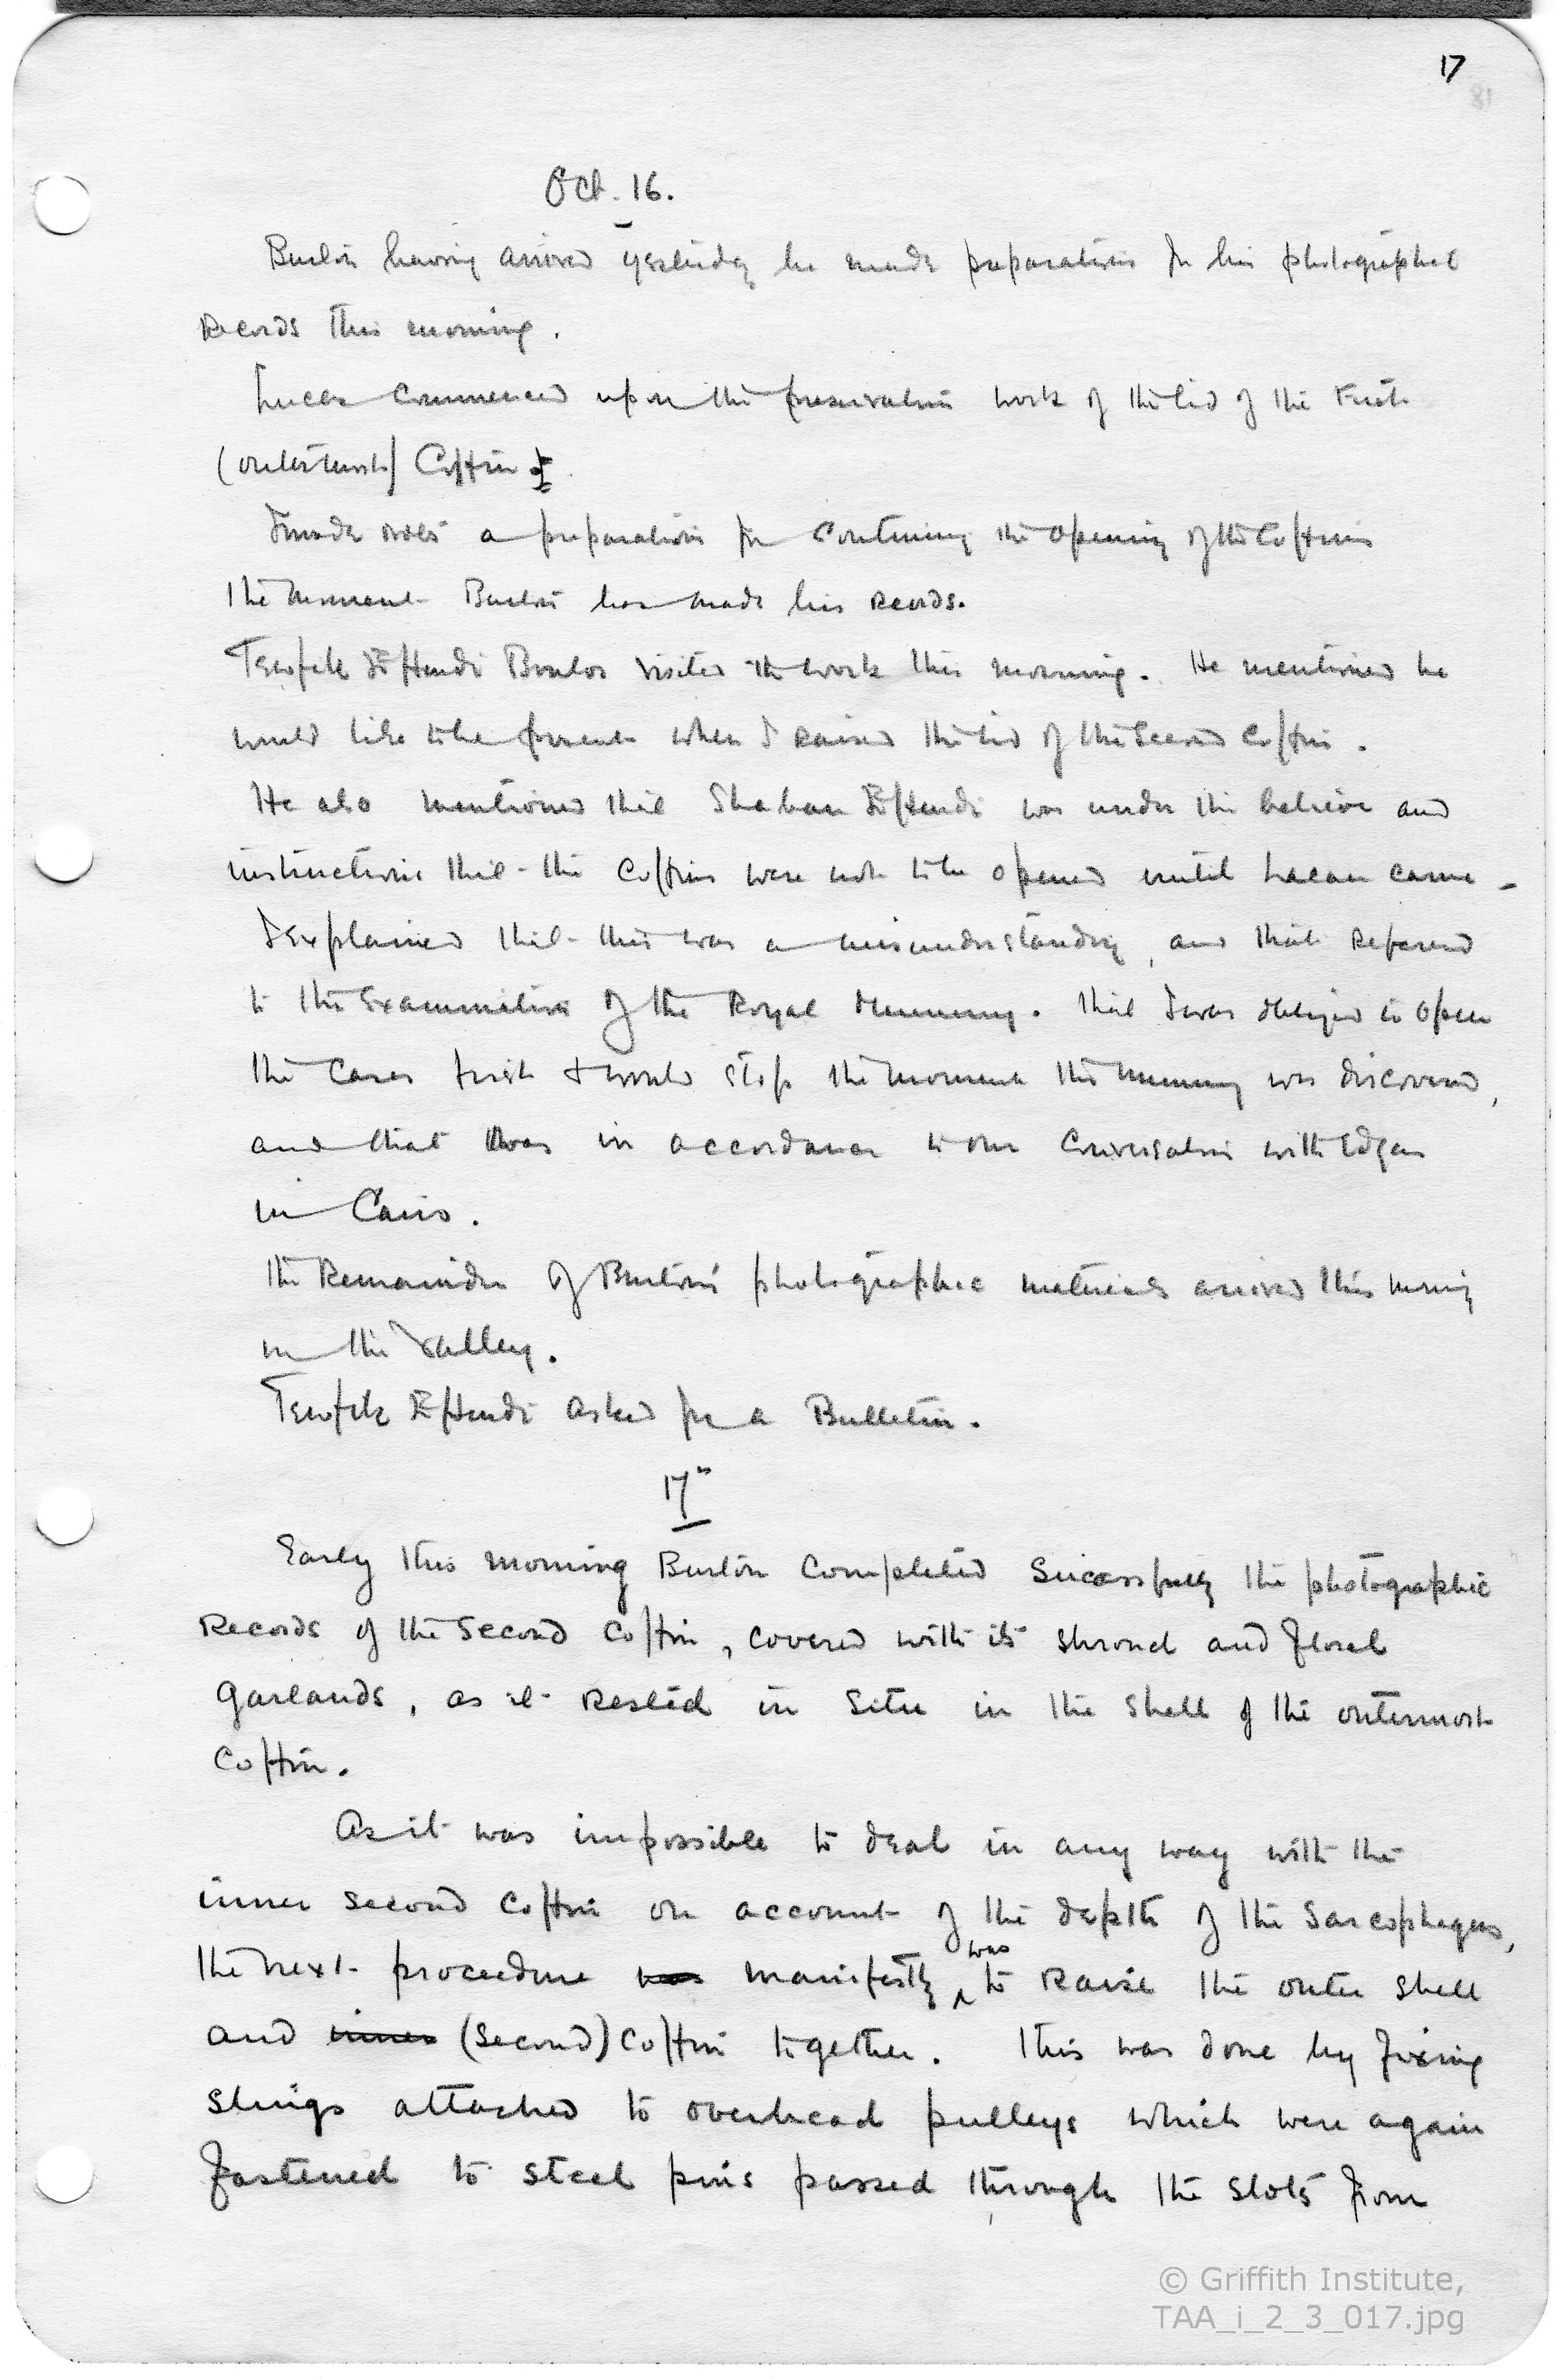 17
18
Oct. 16.
Burton having arrived yesterday he made preparations for his photographic
Records this morning.
Lucas commenced upon the preservation work of the lid of the First
(outermost) Coffin.
I made also a preparation for continuing the opening of the Coffins
the moment Burton has made his Records.
Tewfik Effendi Boulos visited the work this morning. He mentioned he
would like to be present when I raised the lid of the Second Coffin.
He also mentioned that Shaban Effendi was under the believe and
instructions that the Coffins were not to be opened until Lacau came -
I explained that this was a misunderstanding, and that refered
to the Examination of the Royal Mummy. that I was obliged to open
the Cases first & would stop the moment the mummy was discovered,
and that was in accordance to our Conversation with Edgar
in Cairo.
the Remainder of Burton's photographic materials arrived this morning
in the Valley.
Tewfik Effendi asked for a Bulletin.
17th
Early this morning Burton Completed Sucessfully the photographic
Records of the Second Coffin, covered with its shroud and floral
garlands, as it Rested in Situ in the shell of the outermost
Coffin.
As it was impossible to deal in any way with the
inner second Coffin on account of the depth of the Sarcophagus,
the next procedure was manifestly was to Raise the outer shell
and inner (second) Coffin together. This was done by fixing
slings attached to overhead pulleys which were again
fastened to steel pins passed through the slots from
© Griffith Institute,
TAA_i_2_3_017.jpg